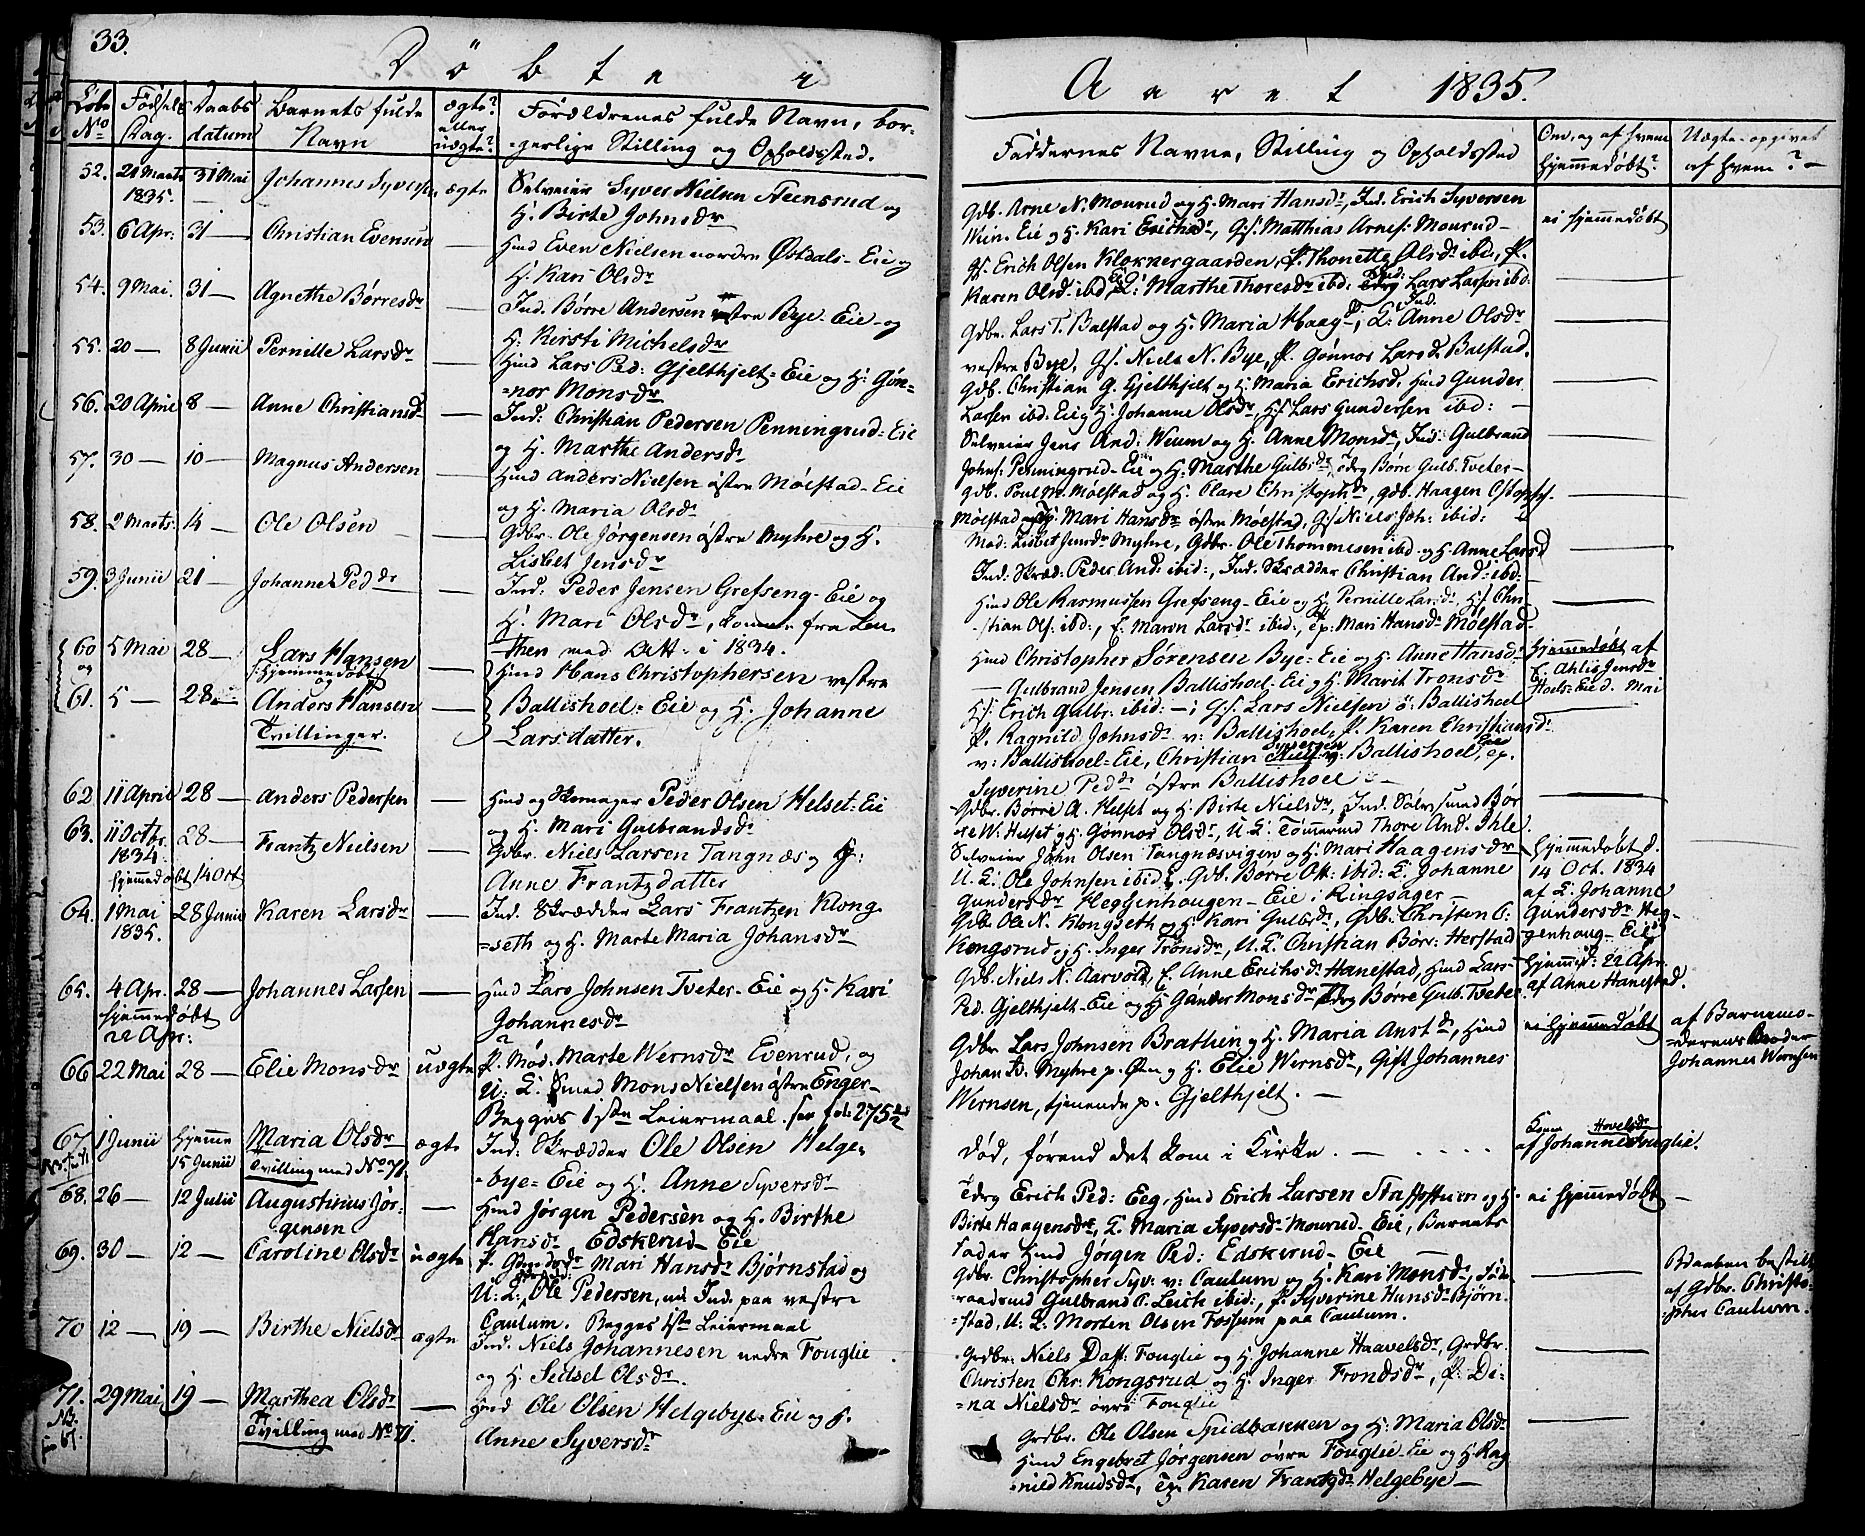 33.
Döbte i
Löbe No
Fødsels Dag.
Daabs datum
Barnets fulde Navn
ægte? eller uægte?
Forældrenes fulde Navn, bor-
-gerlige Stilling og Opholdssted.
52. 21 Marts 1835. 31 Mai Johannes Syversen ægte Selveier Syver Nielsen Steensrud og
H. Birte Johnsdr
53. 6 Apr: 31 — Christian Evensen — Huusmd Even Nielsen nordre Østdals-Eie og
H. Kari Olsdr
54. 9 Mai. 31 — Agnethe Børresdr — Ind. Børre Andersen østre Bye-Eie og
H. Kirsti Michelsdr
55. 20 — 8 Junii Pernille Larsdr — Hmd Lars Ped: Gjelthjelt-Eie og H: Gøn-
=nor Monsdr
56. 20 April 8 — Anne Christiansdr — Ind: Christian Pedersen Penningrud-Eie
og H. Marthe Andersdr
57. 30 — 10 — Magnus Andersen — Hmd Anders Nielsen østre Mølstad-Eie
og H. Maria Olsdr
58. 2 Marts 14 — Ole Olsen — Gdbr. Ole Jörgensen østre Myhre og H.
Lisbet Jensdr
59. 3 Junii 21 — Johanne Peddr — Ind: Peder Jensen Grefseng-Eie og
H. Mari Olsdr, kommen fra Leu-
then med Att. i 1834.
60 5 Mai 28 — Lars Hansen — Hmd Hans Christophersen vestre
og hjemmedøbt og
61. 5 — 28 — Anders Hansen — Ballishoel-Eie og H. Johanne
Tvillinger. Larsdatter.
62 11 April 28 — Anders Pedersen — Hmd og Skomager Peder Olsen Helset-Eie
og H. Mari Gulbrandsdr
63. 11 Octbr. 1834. 28 — Frantz Nielsen — Gdbr. Niels Larsen Tangnæs og H:
hjemmedøbt 14 Oct Anne Frantzdatter
64. 1 Mai 1835. 28 Junii Karen Larsdr — Ind. Skrædder Lars Frantzen Klong-
=seth og H. Marte Maria Johansdr
65. 4 Apr. 28 — Johannes Larsen — Hmd Lars Johnsen Tveter-Eie og H. Kari
hjemmedøbt 22 Apr: Johannesdr
66 22 Mai 28 — Elie Monsdr uægte P. Mød. Marte Wernsdr Evenrud, og
U. K. Smed Mons Nielsen østre Enger-
Begges 1ste Leiermaal. see fol: 275
67. 1 Junii hjemme 15 Junii Maria Olsdr ægte Ind: Skrædder Ole Olsen Helge-
Tvilling med No 71. -bye-Eie og H. Anne Syversdr
68. 26 — 12 Julii Augustinus Jør- — Hmd Jørgen Pedersen og H. Birthe
gensen Hansdr Edskerud-Eie
69. 30 — 12 — Caroline Olsdr uægte P. Mari Hansdr Bjørnstad og
U. K: Ole Pedersen, nu Ind. paa vestre
Caulum. Begges 1ste Leiermaal
70 12 — 19 — Birthe Nielsdr ægte Ind. Niels Johannesen nedre Fouglie
og H. Sidsel Olsdr.
71. 29 Mai 19 — Marthea Olsdr — Hmd Ole Olsen Helgebye-Eie og H.
Tvilling med No 71. Anne Syversdr
Aaret 1835.
Faddernes Navne, Stilling og Opholdssted
Om, og af hvem hjemmedøbt?
Uægte-opgivet af hvem? —
Gdb. Arne N. Mourud og H. Mari Hansdr, Ind. Erich Syversen
Eie og H. Kari Erichsdr, Gs. Matthias Arnes: Mourud — ei hjemmedøbt
Gs. Erich Olsen Kloknergaarden, P. Thonette Olsdr ibid, P.
Karen Olsdr ibid. Marthe Thoresdr ibid: Lars Larsen ibid: —
Gdbr. Lars T. Balstad og H. Maria Haagdr, Anne Olsdr
vestre Bye, Gs. Niels N. Bye, P. Gønnor Larsdr Balstad. —
Gdb. Christian G. Gjelthjelt og H. Maria Erichsdr, Hmd Gunder
Larsen ibid. Eie og H. Johanne Olsdr, Hs. Lars Gundersen ibid: —
Selveier Jens And: Wium og H. Anne Monsdr, Ind. Gulbrand
Johns: Penningrud-Eie og H. Marthe Gulbrdr, Børre Gulb. Tveter —
Gdb. Poul M. Mølstad og H. Clare Christophdr, Gdb. Haagen
Mølstad og Mari Hansdr østre Mølstad, Gs. Niels Joh: ibid:
Mad: Lisbet Jensdr Myhre, Gdbr. Ole Thommesen ibid. og H. Anne Larsd
Ind: Skræd: Peder And: ibid:, Ind. Skrædder Christian And: ibd: —
Hmd Ole Rasmussen Grefseng-Eie og H. Pernille Larsdr, Hs. Chri-
-stian Ols. ibid:, Maren Larsdr ibid:, Mari Hansdr Mølstad —
Hmd Christopher Sørensen Bye-Eie og H. Anne Hansdr hjemmedøbt af
— Gulbrand Jensen Ballishoel-Eie og H. Marit Tronsdr
Hs. Erich Gulbr. ibid: —; Gs. Lars Nielsen ø: Ballishoel
P. Ragnild Johnsdr v: Ballishoel, P. Karen Christiansdr
v: Ballishoel-Eie, Christian Syversen v: Ballishoel
Syverine Peddr østre Ballishoel —
Gdbr. Børre A. Helset og H. Birte Nielsdr, Ind. Bør
re W. Helset og H. Gønnor Olsdr, U. K. Tømmermd Thore And. Ihle.
Selveier John Olsen Tangnæsvigen og H. Mari Haagensdr hjemmedøbt d.
U. K. Ole Johnsen ibid. Gdb. Børre Ott. ibid: Johanne 14 Oct. 1834
Gundersdr Heggenhougen-Eie i Ringsager — af Johanne
Gdb. Ole N. Klongseth og H. Kari Gulbrdr, Gdb. Christen C: Gundersdr Heg-
Kongsrud og H. Inger Tronsdr, U. K. Christian Børr: Herstad genhoug-Eie
Gdb. Niels N. Aarvold, Anne Erichsdr Hanestad, Hmd Lars hjemmed: 22 Apr:
Ped. Gjelthjelt-Eie og H. Gønnor Monsdr, Børre Gulb. Tveter. af Anne Hanestad.
Gdbr Lars Johnsen Brathen og H. Maria Anstdr, Hmd ei hjemmedøbt af Barnemo-
Johan Myhre og H. Elie Wernsdr, Gift Johannes -derens Broder
Wernsen, tjenende p. Gjelthjelt. — Johannes Wernsen
død, førend det kom i Kirke. — . . . . af Johanne Hovelsdr Fouglie.
Erich Ped: Eeg, Hmd Erich Larsen og H. ei hjemmedøbt —
Birte Haagensdr, Maria Syversdr Mourud-Eie, Barnets
Fader Hmd Jørgen Ped: Edskerud-Eie —
Gdbr. Christopher Syv: v: Caulum og H. Kari Monsdr, Daaben bestilt
Gulbrand ibid:, P. Syverine Hansdr Bjørn- af Gdbr. Christo-
-stad, U. K. Morten Olsen Fossum paa Caulum. -pher Caulum.
Grdbr. Niels Fouglie og H. Johanne Haavelsdr, Grdbr
Christen Chr. Kongsrud og H. Inger Trondsdr, P. Di-
-na Nielsdr øvre Fouglie —
Grdbr. Ole Olsen Spidbakken og H: Maria Olsdr
Hmd Engebret Jørgensen øvre Fouglie-Eie og H. Rag-
-nild Knudsdr, Karen Frantzdr Helgebye —